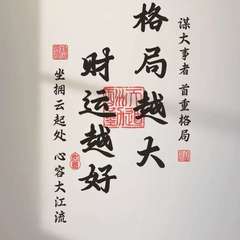 谋大事者 首重格局
格局越大
财运越好
坐拥云起处 心容大江流